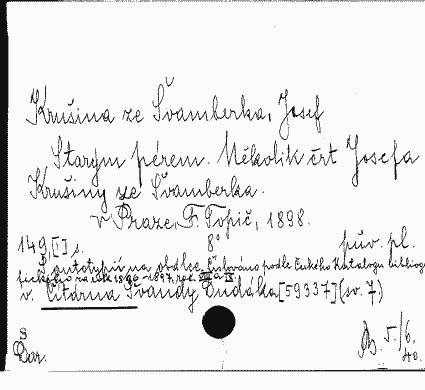 Krušina ze Švamberka, Josef
Starým pérem. Několik črt Josefa
Krušiny ze Švamberka.
v Praze, F. Topič, 1898.
149,[I] s. 8° pův. pl.
S autotypií na obálce. Číslováno podle Českého katalogu bibliogra-
fického za rok 1896-1897, roč. III a IX.
v. Čítárna Švandy Dudáka [59337] (sv. 7)
S
Dar.
5./6.
40.